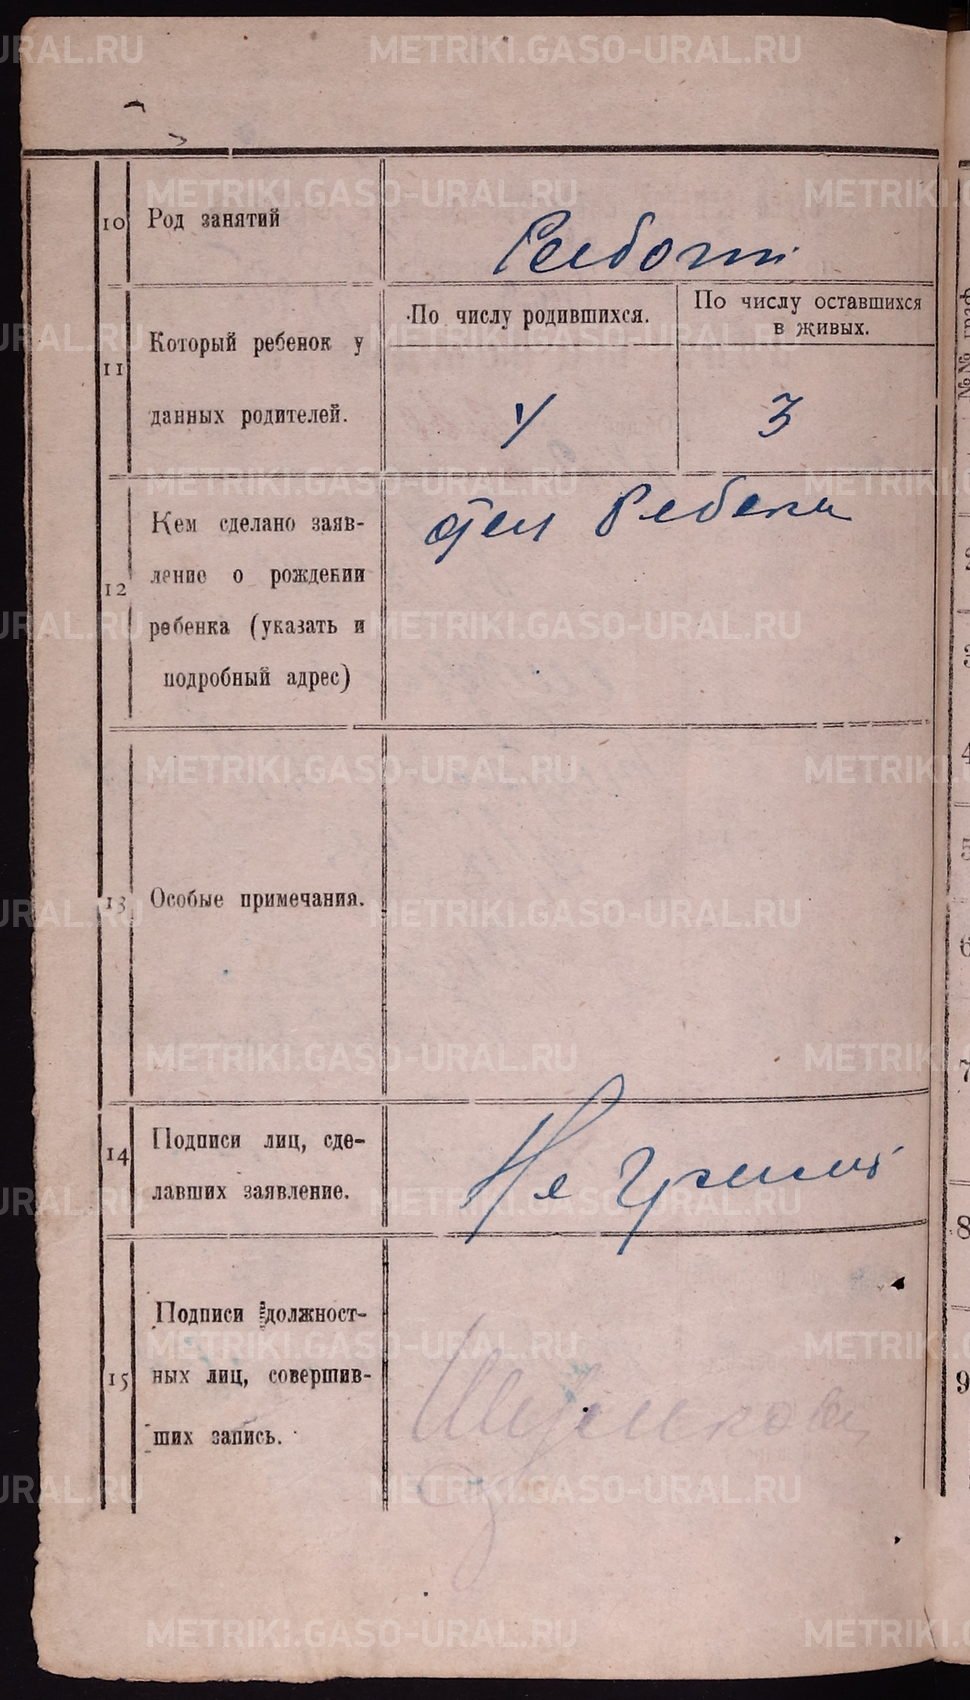 METRIKI.GASO-URAL.RU
10 Род занятий
11 Который ребенок у
данных родителей.
По числу родившихся.
По числу оставшихся
в живых.
4
3
12 Кем сделано заяв-
ление о рождении
ребенка (указать и
подробный адрес)
13 Особые примечания.
14 Подписи лиц, сде-
лавших заявление.
15 Подписи должност-
ных лиц, совершив-
ших запись.
4
6
7
8
9